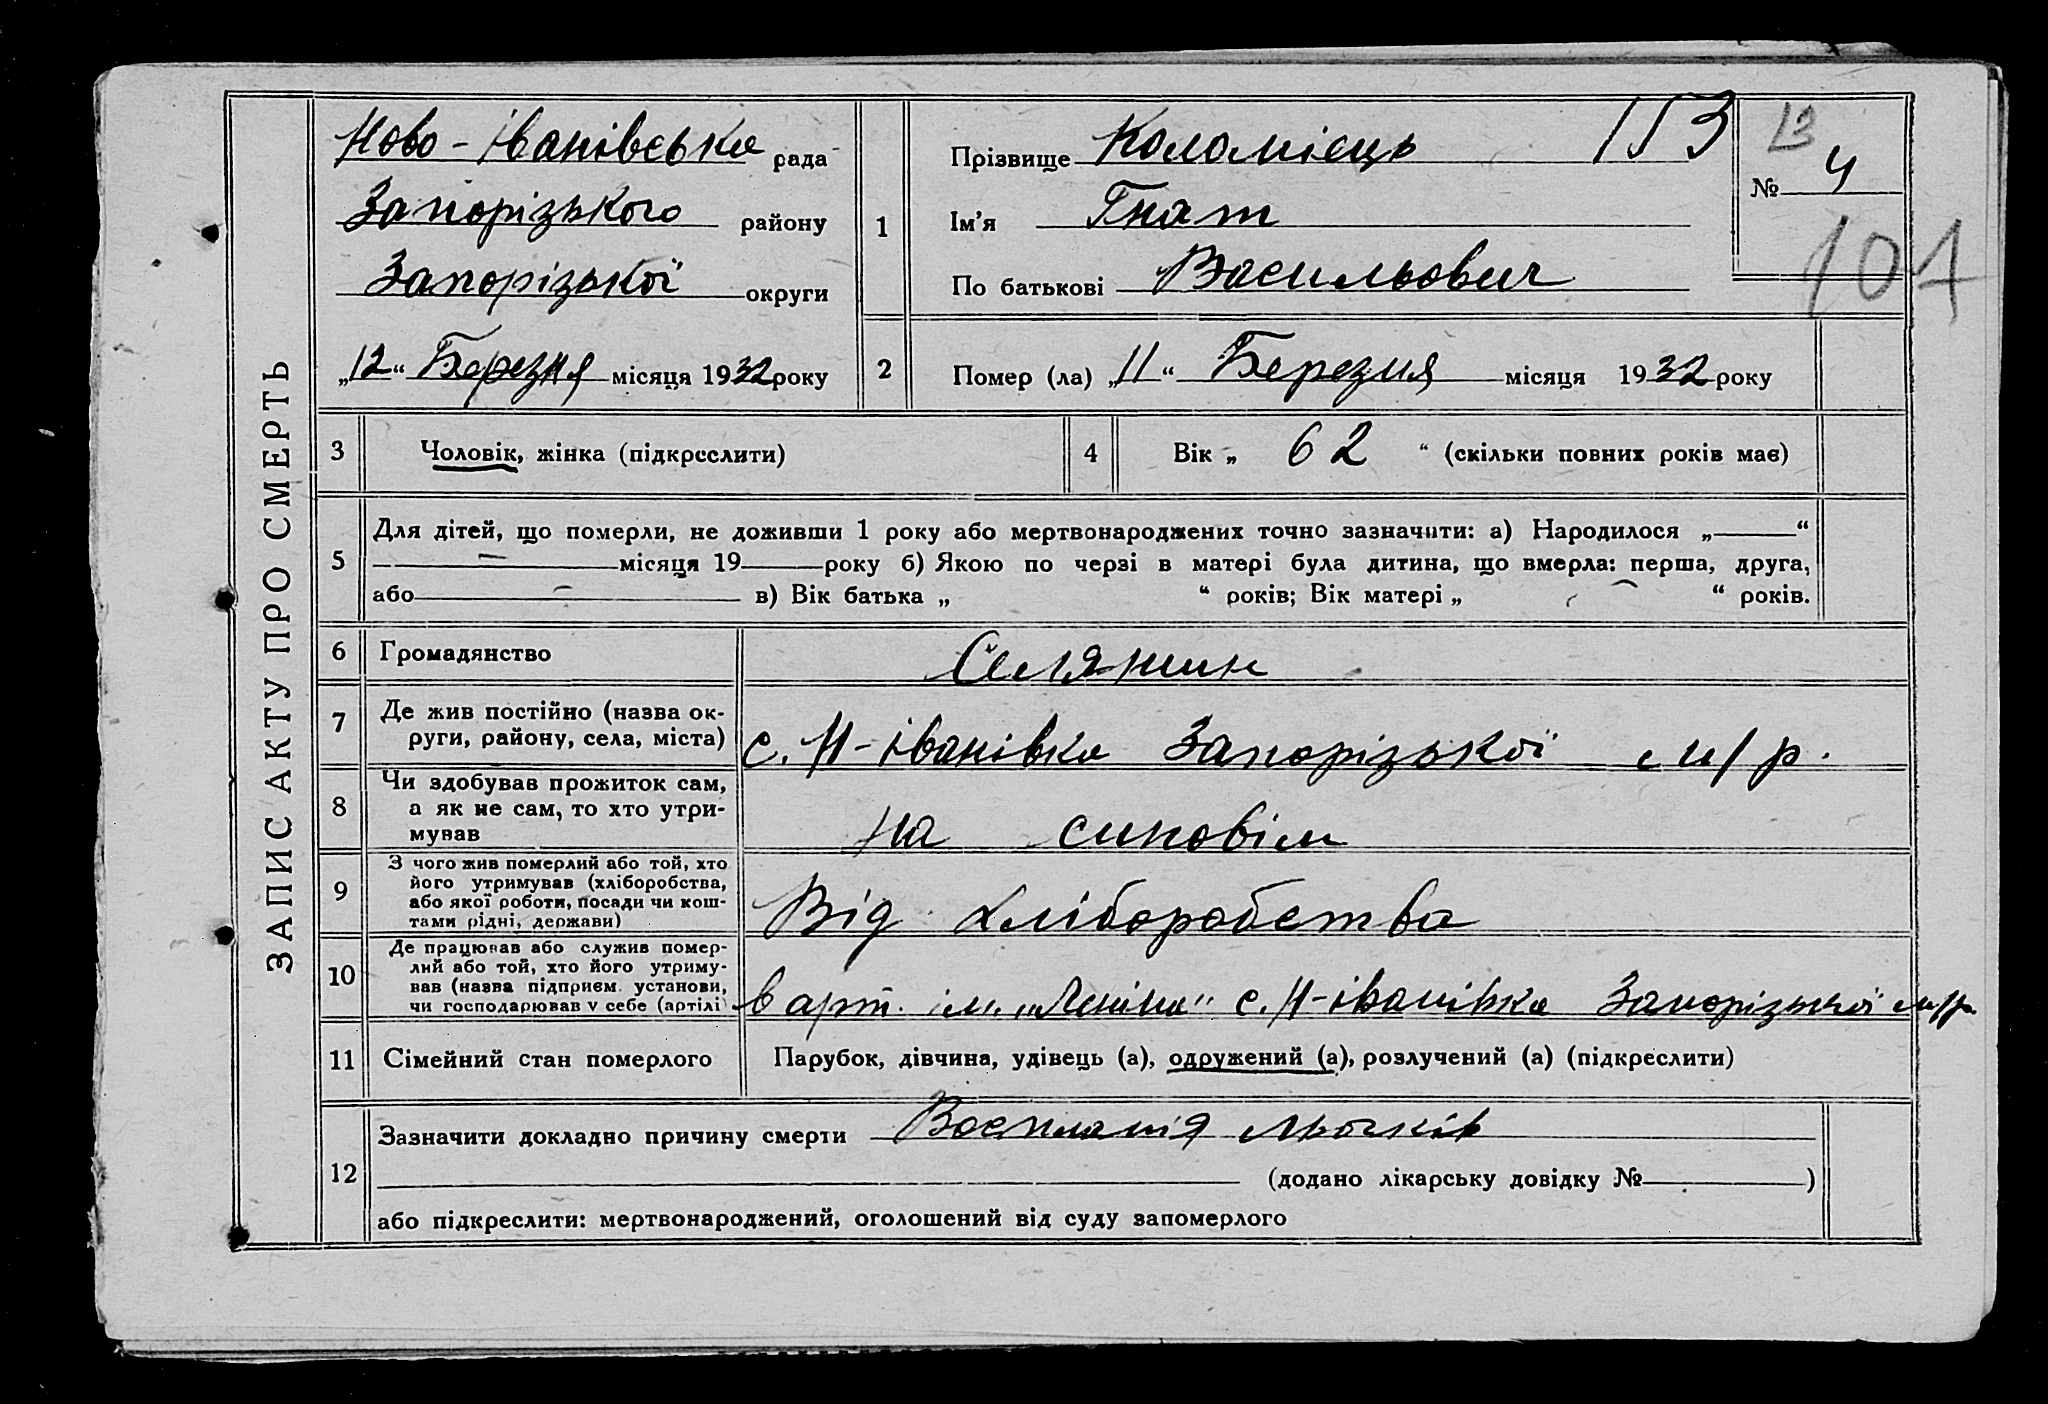 ЗАПИС АКТУ ПРО СМЕРТЬ
Ново-Іванівська рада
Запорізького району
Запорізької округи
„12“ Березня місяця 1932 року
1
Прізвище Коломієць
Ім'я Гнат
По батькові Васильович
113
13
№ 4
101
2
Помер (ла) „11“ Березня місяця 1932 року
3
Чоловік, жінка (підкреслити)
4
Вік „ 62 “ (скільки повних років має)
5
Для дітей, що померли, не доживши 1 року або мертвонароджених точно зазначити: а) Народилося „—“
— місяця 19— року б) Якою по черзі в матері була дитина, що вмерла: перша, друга,
або — в) Вік батька „ “ років; Вік матері „ — “ років.
6
Громадянство
Селянин
7
Де жив постійно (назва ок-
руги, району, села, міста)
с. Н-Іванівка Запорізької м/р.
8
Чи здобував прожиток сам,
а як не сам, то хто утри-
мував
на синовім
9
З чого жив померлий або той, хто
його утримував (хліборобства,
або якої роботи, посади чи кош-
тами рідні, держави)
Від хліборобства
10
Де працював або служив помер-
лий або той, хто його утриму-
вав (назва підприєм. установи,
чи господарював у себе (артілі)
в арт. ім. „Леніна“ с. Н-Іванівка Запорізької м/р.
11
Сімейний стан померлого
Парубок, дівчина, удівець (а), одружений (а), розлучений (а) (підкреслити)
12
Зазначити докладно причину смерти Воспаленія льогків
(додано лікарську довідку № )
або підкреслити: мертвонароджений, оголошений від суду запомерлого